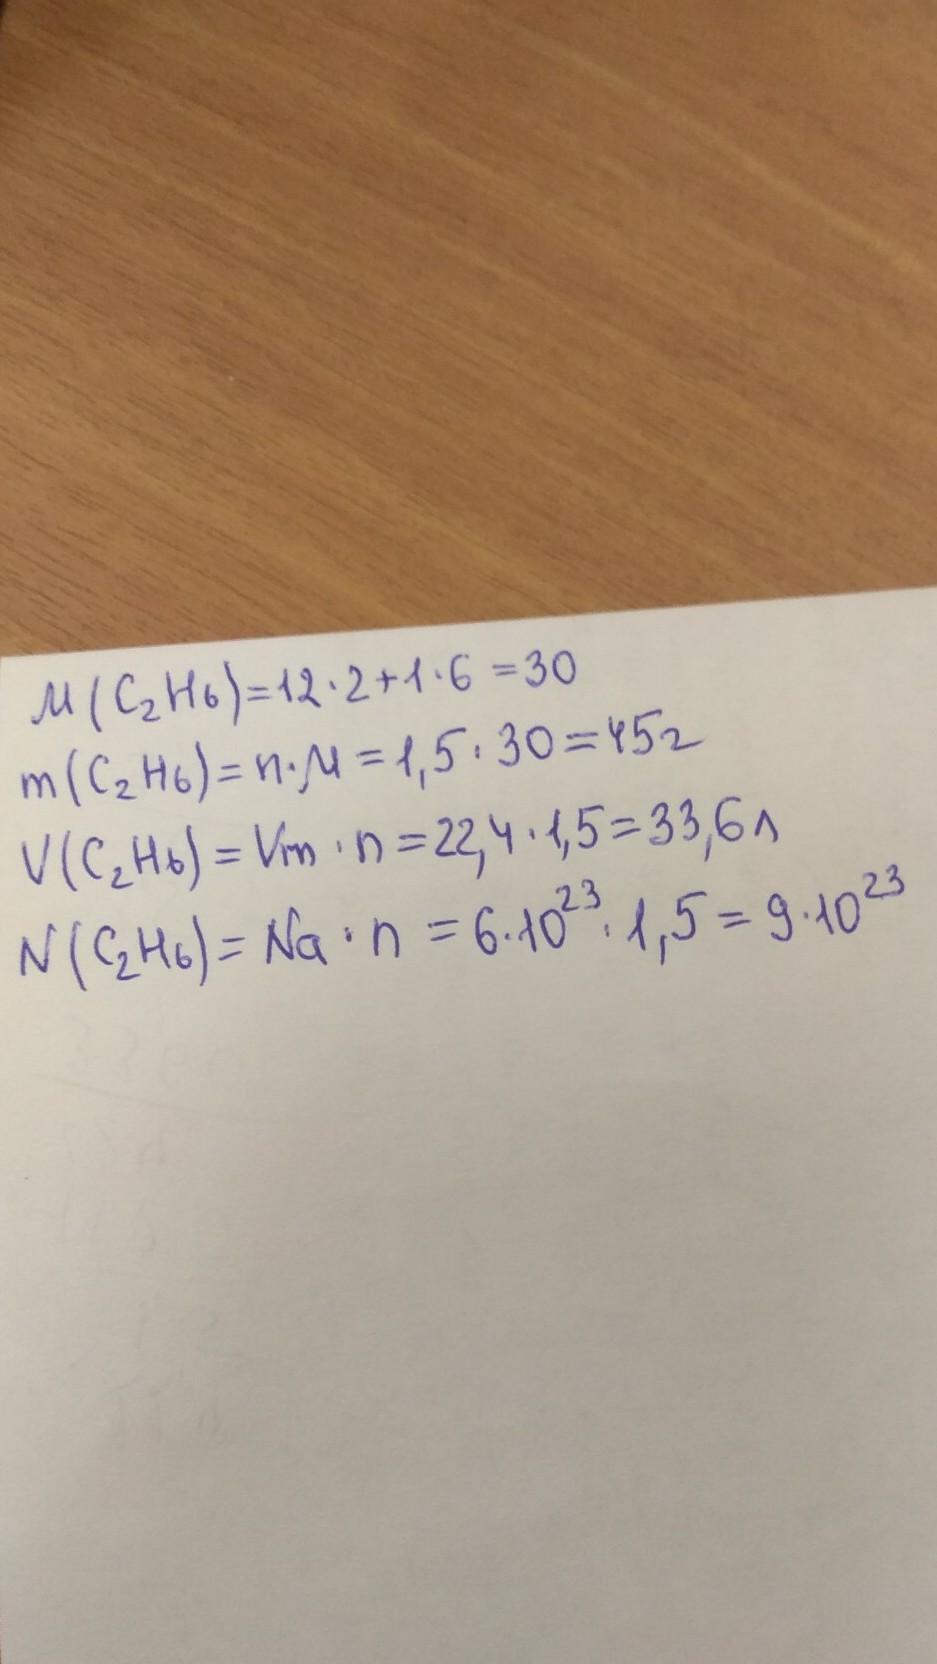 M(C₂H₆)=12·2+1·6=30
m(C₂H₆)=n·M=1,5·30=45г
V(C₂H₆)=Vm·n=22,4·1,5=33,6л
N(C₂H₆)=Na·n=6·10²³·1,5=9·10²³